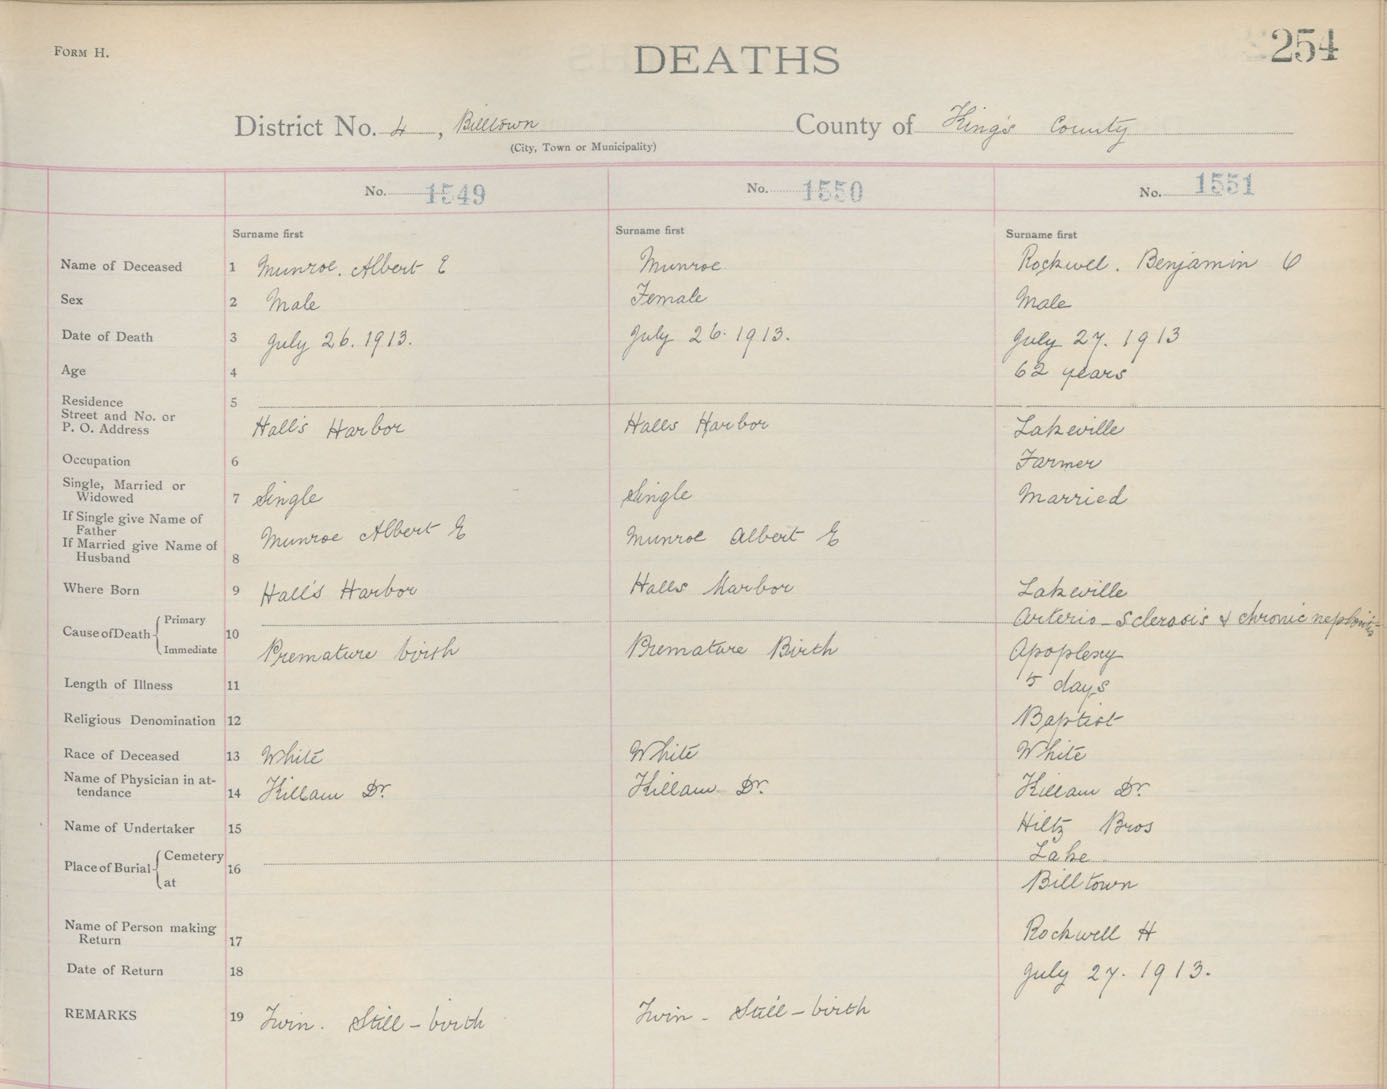 FORM H.
DEATHS
254
District No. 4, Billtown County of King's County
(City, Town or Municipality)
No. 1549 No. 1550 No. 1551
Surname first Surname first Surname first
Name of Deceased 1 Munroe. Albert E Munroe Rockwel. Benjamin
Sex 2 Male Female Male
Date of Death 3 July 26. 1913. July 26. 1913. July 27. 1913
Age 4 62 years
Residence 5
Street and No. or
P. O. Address Hall's Harbor Halls Harbor Lakeville
Occupation 6 Farmer
Single, Married or
Widowed 7 Single Single Married
If Single give Name of
Father Munroe Albert E Munroe Albert E
If Married give Name of
Husband 8
Where Born 9 Hall's Harbor Halls Harbor Lakeville
Cause of Death 10
Primary Arterio-Sclerosis & chronic nephritis
Immediate Premature birth Premature Birth Apoplexy
Length of Illness 11 5 days
Religious Denomination 12 Baptist
Race of Deceased 13 White White White
Name of Physician in at-
tendance 14 Killam Dr. Killam Dr. Killam Dr.
Name of Undertaker 15 Hiltz Bros
Place of Burial 16
Cemetery Lake
at Billtown
Name of Person making
Return 17 Rockwell H
Date of Return 18 July 27. 1913.
REMARKS 19 Twin. Still-birth Twin - Still-birth